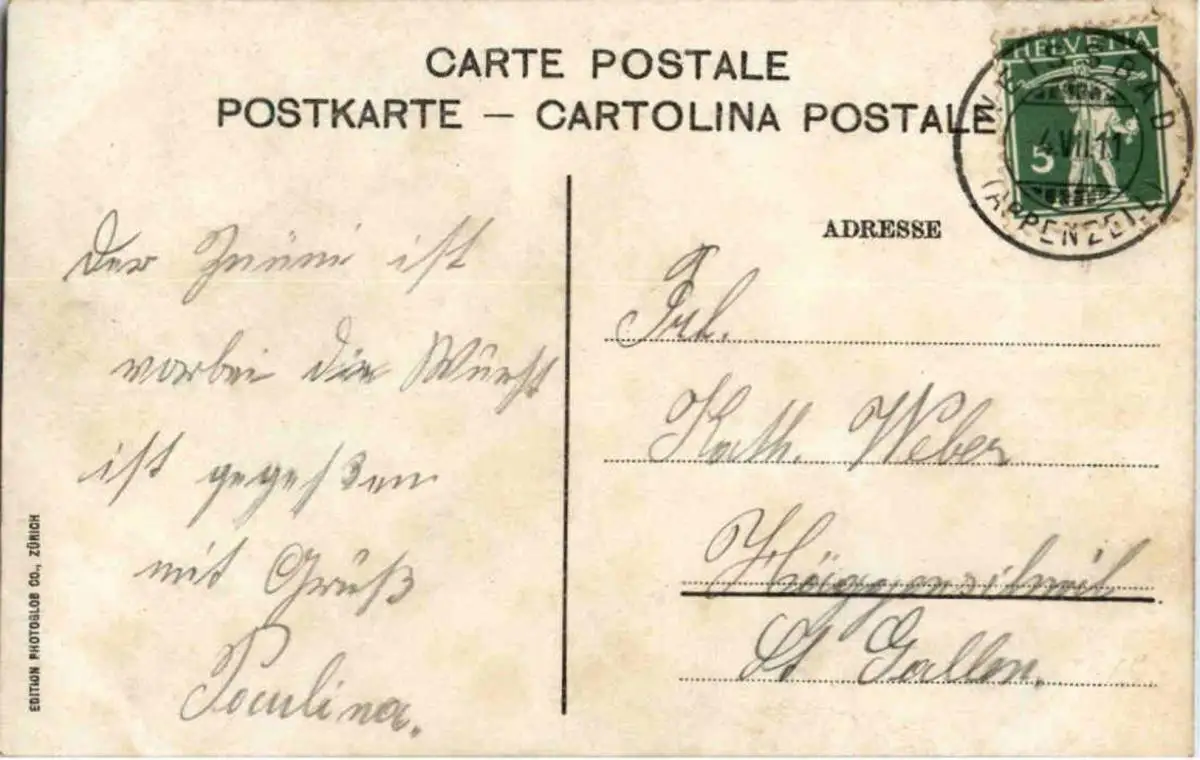 CARTE POSTALE
POSTKARTE — CARTOLINA POSTALE
HELVETIA
5
WEISSBAD
4.VII.11
(APPENZELL)
ADRESSE
Der Znüni ist
vorbei die Würst
ist gegeßen
mit Grüß
Paulina.
Frl.
Kath. Weber
Häggenschwil
St Gallen.
EDITION PHOTOGLOB CO., ZÜRICH